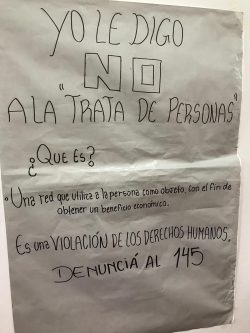 YO LE DIGO
NO
A LA "TRATA DE PERSONAS"
¿QUE ES?
"Una red que utiliza a la persona como objeto, con el fin de
obtener un beneficio económico.
Es una VIOLACIÓN DE LOS DERECHOS HUMANOS.
DENUNCIÁ AL 145